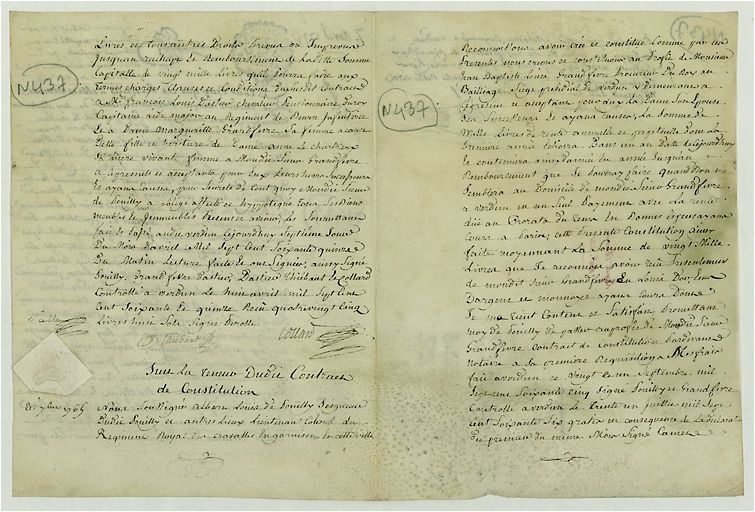 N437
Livres et tous autres Droits prevus ou Imprevus
jusqu'au rachapt et Remboursement de Ladite Somme
Capitalle de vingt mille Livres qu'il pourra faire aux
termes charges Clauses et Conditions dudit Contract
a Mr françois Louis Chevalier Pensionnaire du roy
Capitaine aide major au Regiment de Bearn Infanterie
et a Dame Marguerite Grandfevre Sa femme a cause
Delle fille et heritiere de Dame anne Le Chartreux
Sa mere vivante femme a Mondit Sieur Grandfevre
a ce presents et acceptants pour eux Leurs hoirs Successeurs
et ayans causes, pour Seureté de tout quoy Mondit Sieur
de Pouilly a obligé affecté et hyppotequé tous Ses Biens
meubles et Immeubles presens et avenir, les Soumettant
fait et passé audit verdun Cejourdhuy Septieme Jour
Du Mois davril Mil Sept Cent Soixante quinze
Du Matin Lecture faite et ont Signés, ainsy Signé
Pouilly, Grandfevre Thiebaut et Collard
Controllé a verdun le huit avril mil Sept cent
cent Soixante et quinze Recu quatrevingt Cinq
Livres huit Sols Signé
Thiebaut
Collard
Suit La Teneur Dudit Contract
de Constitution
1765
Nous Soussigné albert Louis de Pouilly Seigneur
Dudit Pouilly et autres Lieux Lieutenant Colonel du
Regiment Royal des Cravattes En garnison en cette ville
N437
Reconnoissons avoir créé et constitué Comme par ces
Presentes nous creons et constituons au Profit de Monsieur
Jean Baptiste Louis Grandfevre Procureur Du Roy au
Bailliage Siege presidial de verdun y demeurant a
ce present et acceptant pour luy La Dame Son Epouse
Ses Successeurs et ayans causes, La Somme de
Mille Livres de rente annuelle et perpetuelle dont La
Premiere année échoira Dans un an Datte de Cejourdhuy
Et continuera ainsy Dannée en année Jusquau
Remboursement que Je pourray faire quand Bon me
Semblera au Domicile de mondit Sieur Grandfevre
a verdun et en un Seul Payement avec La rente
due au Prorata du tems En Bonnes Especes ayans
Cours a cette presente Constitution ainsy
faite moyennant La Somme de vingt Mille
Livres que Je reconnois avoir reçu
de mondit Sieur Grandfevre En Louis Dor, Ecus
Dargent et monnoye ayans Cours Dont
Je me tient Content et Satisfait, promettant
moy de Pouilly de passer au profit de Mondit Sieur
Grandfevre Contract de Constitution Pardevant
Notaire a Sa premiere Requisition a Mes frais
fait a verdun ce vingt et un Septembre mil
Sept cent Soixante Cinq Signé Pouilly et Grandfevre
Controllé a verdun Le trente un Juillet mil Sept
Cent Soixante Six gratis en consequence de La declaration
Du premier du meme Mois Signé